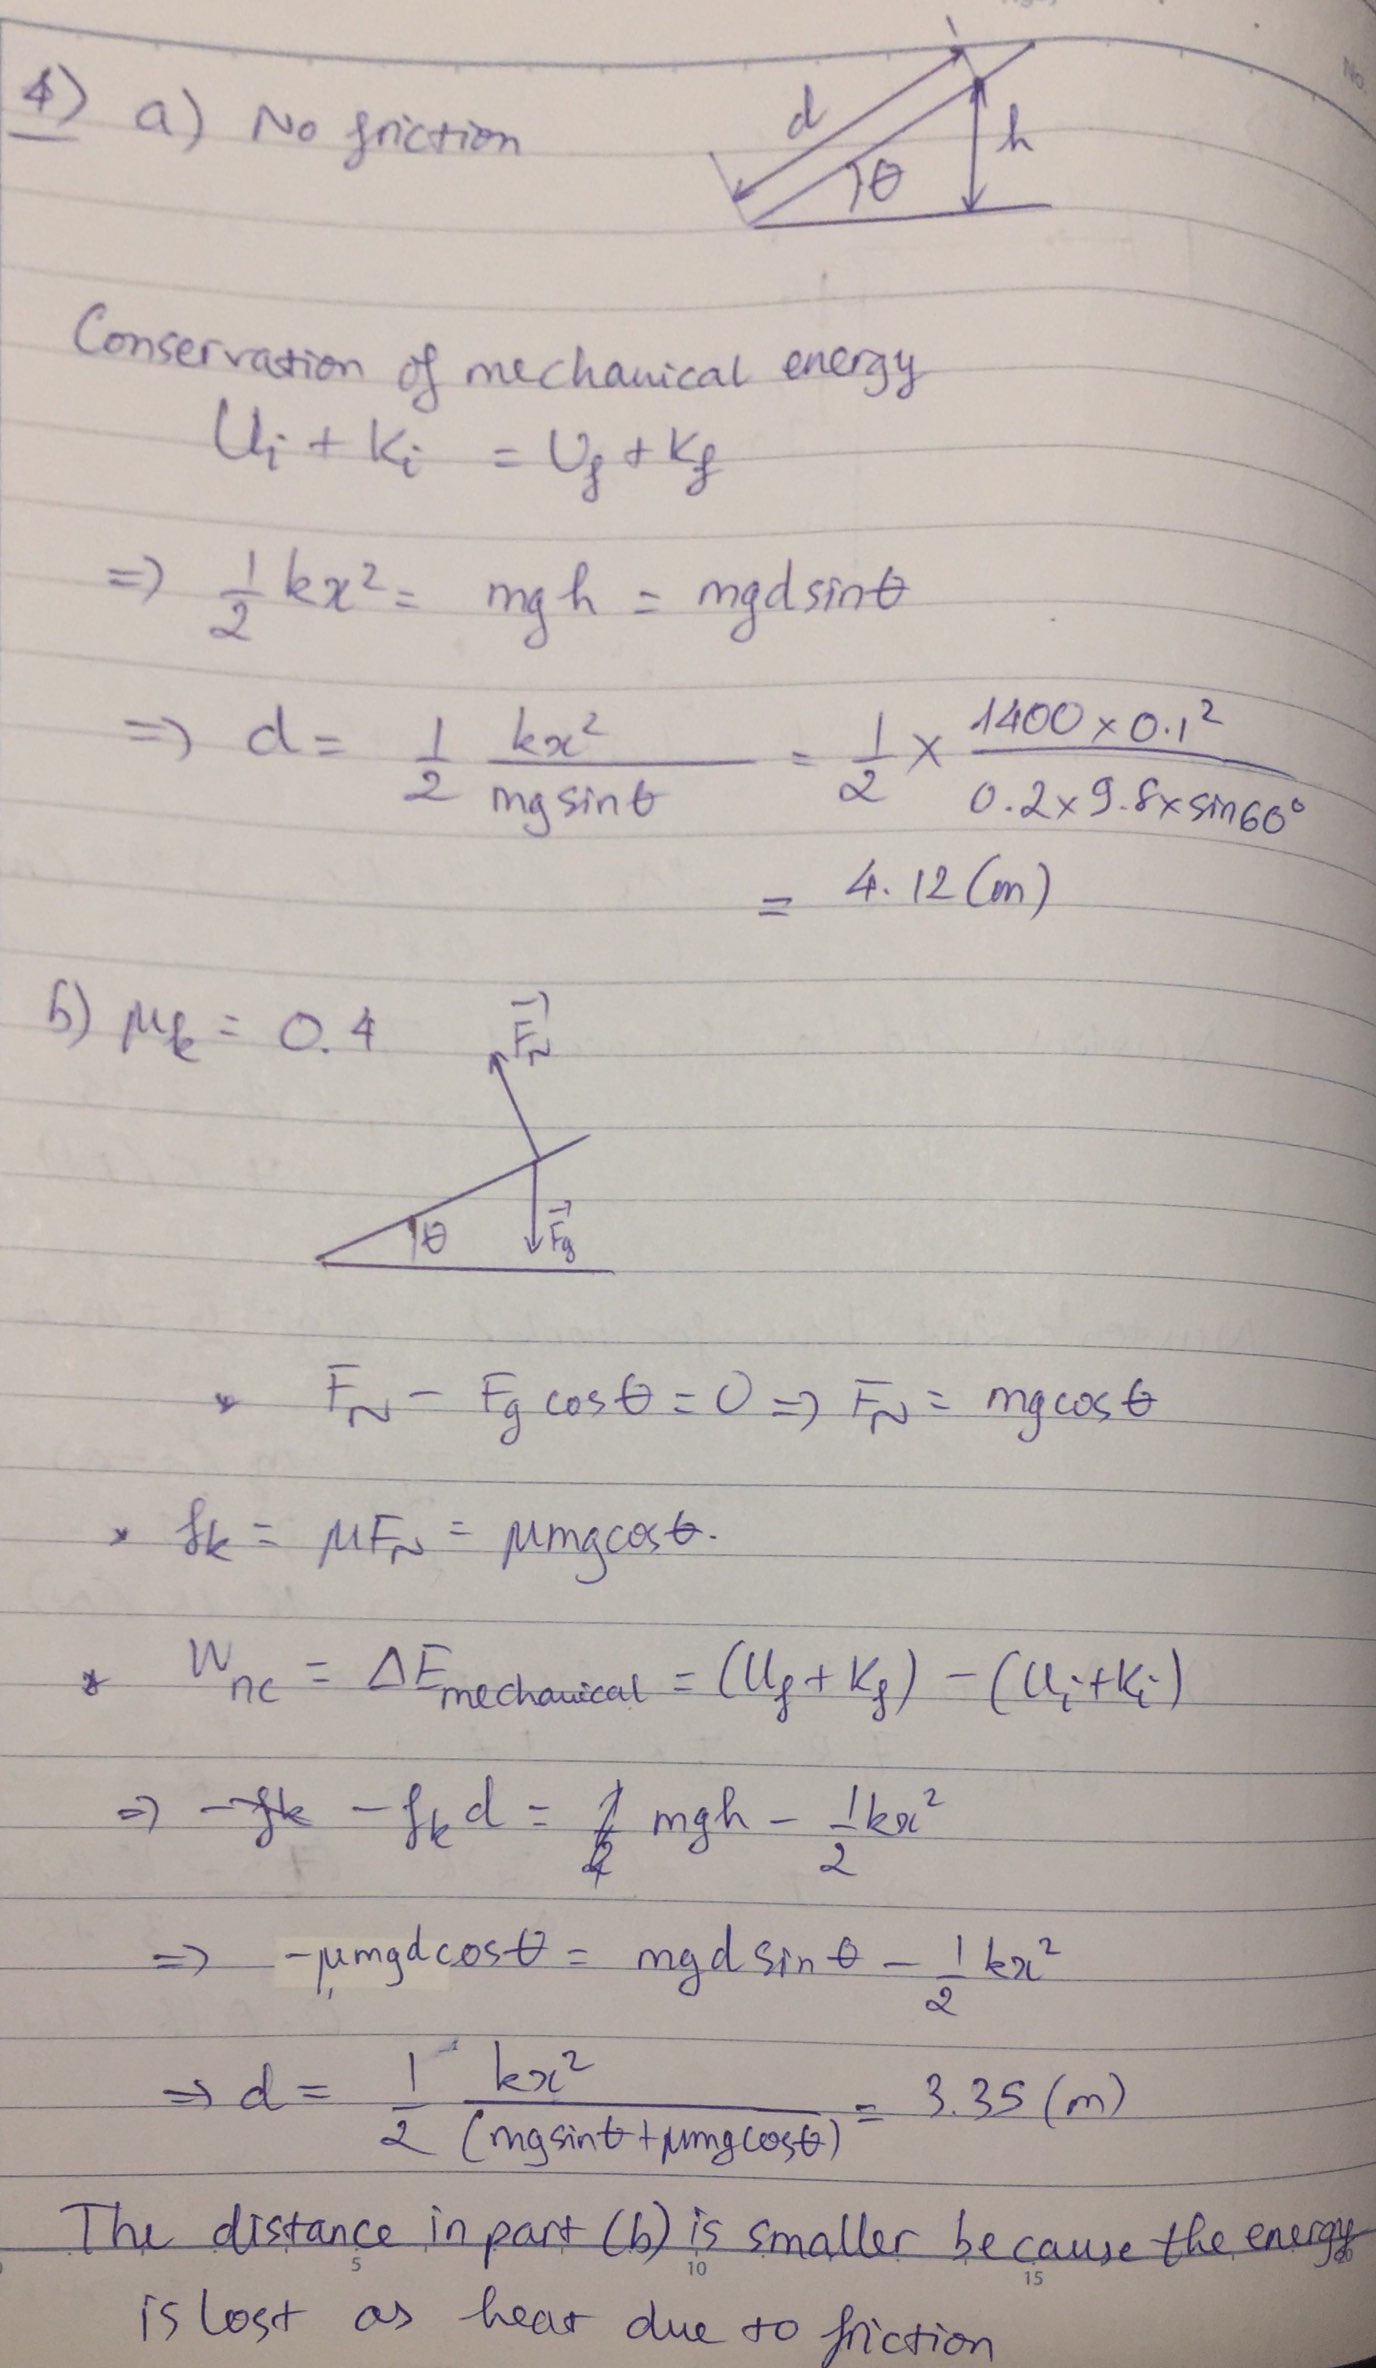 4) a) No friction
d
h
θ
Conservation of mechanical energy
Ui + Ki = Uf + Kf
=> 1/2 kx² = mgh = mgdsinθ
=> d = 1/2 kx²/mgsinθ = 1/2 × 1400 × 0.1²/0.2 × 9.8 × sin60°
= 4.12 (m)
b) μk = 0.4
F⃗N
θ
F⃗g
* FN - Fg cosθ = 0 => FN = mgcosθ
* fk = μFN = μmgcosθ.
* Wnc = ΔEmechanical = (Uf + Kf) - (Ui + Ki)
=> -fk -fk d = mgh - 1/2 kx²
=> -μmgdcosθ = mgd sinθ - 1/2 kx²
=> d = 1/2 kx²/(mgsinθ + μmgcosθ) = 3.35 (m)
The distance in part (b) is smaller because the energy
5 10 15 20
is lost as heat due to friction